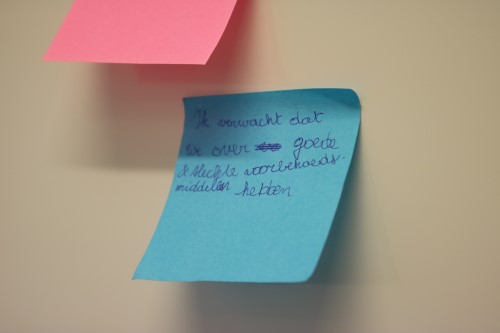 Ik verwacht dat
we over goede
& slechte voorbehoeds-
middelen hebben